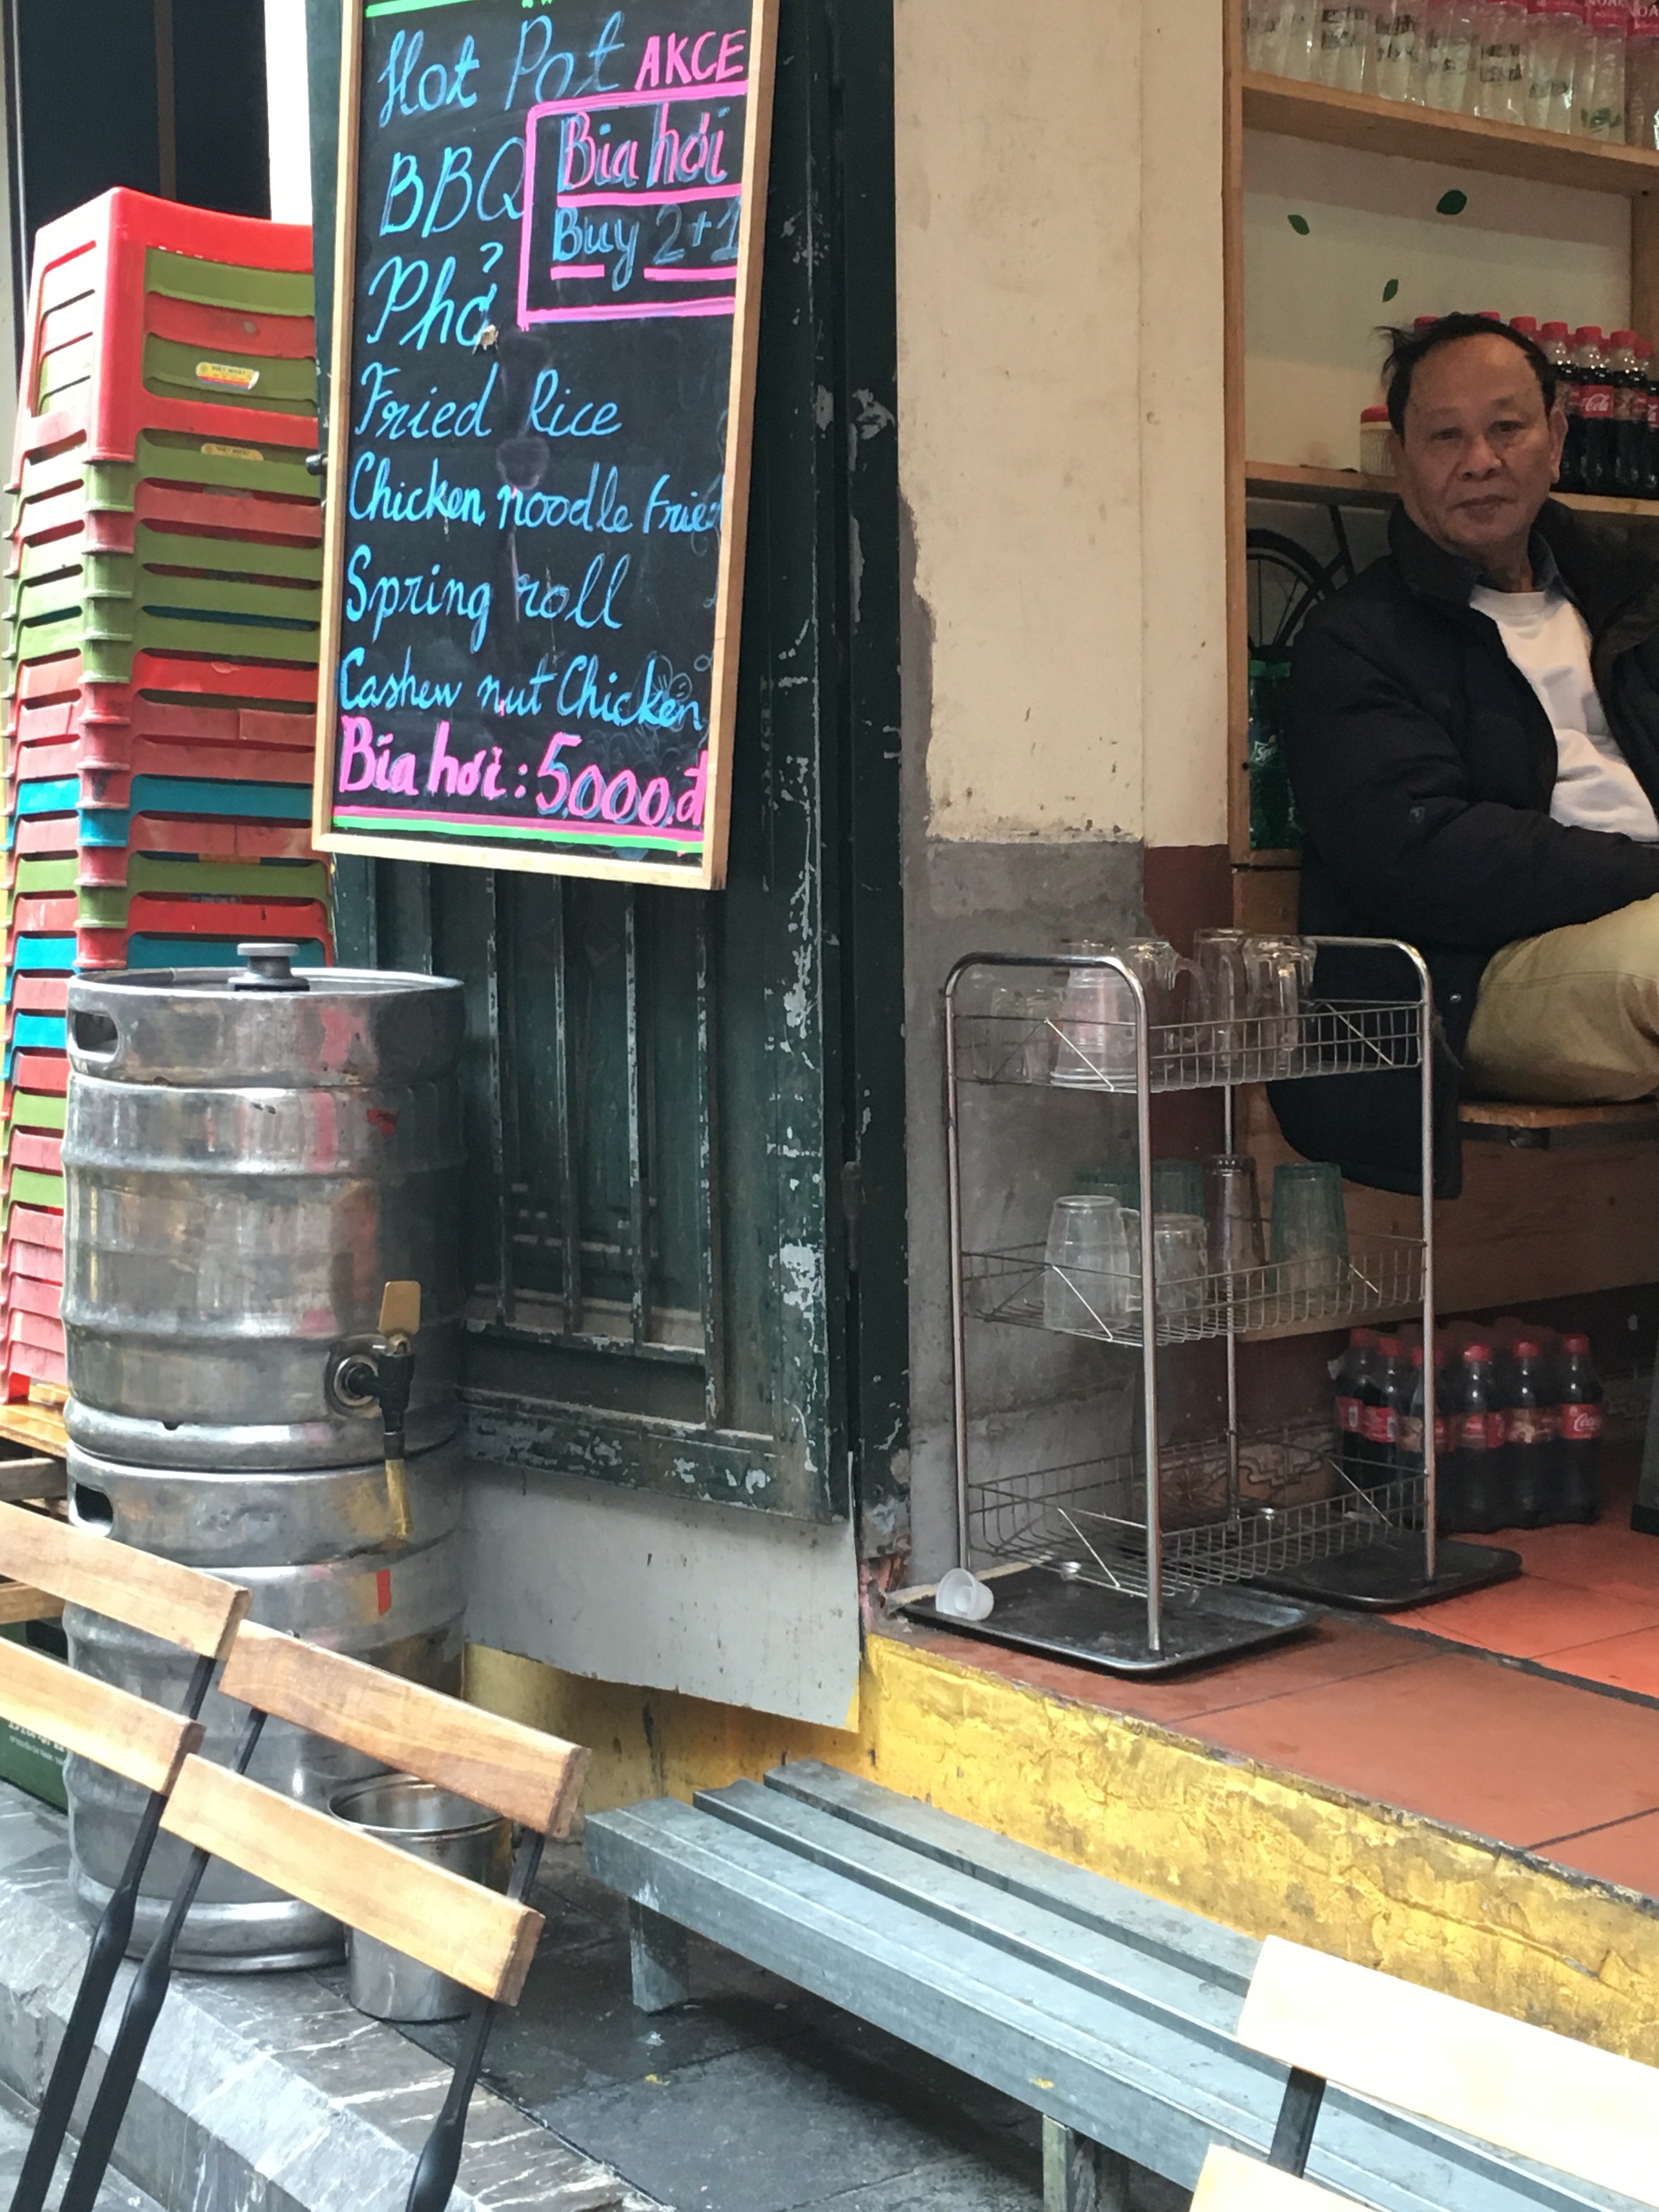 Hot Pot AKCE
BBQ
Bia hơi
Buy 2+1
Phở
Fried Rice
Chicken noodle Fried
Spring roll
Cashew nut Chicken
Bia hơi: 5.000.đ
VIET NHAT
Cola
Sprite
Coca